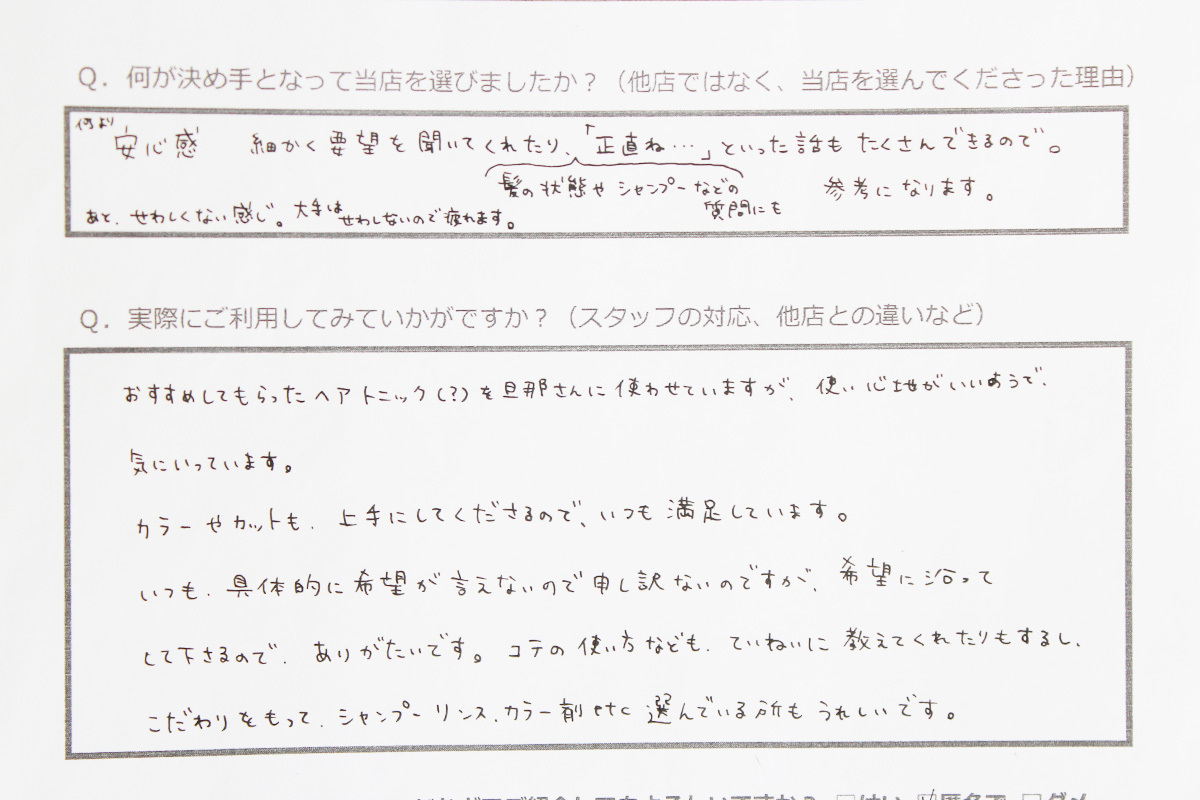 Q. 何が決め手となって当店を選びましたか？（他店ではなく、当店を選んでくださった理由）
何より
安心感　細かく要望を聞いてくれたり、「正直ね…」といった話もたくさんできるので。
髪の状態やシャンプーなどの
質問にも
参考になります。
あと、せわしくない感じ。大手はせわしないので疲れます。
Q. 実際にご利用してみていかがですか？（スタッフの対応、他店との違いなど）
おすすめしてもらったヘアトニック(?)を旦那さんに使わせていますが、使い心地がいいようで、
気にいっています。
カラーやカットも、上手にしてくださるので、いつも満足しています。
いつも、具体的に希望が言えないので申し訳ないのですが、希望に沿って
して下さるので、ありがたいです。コテの使い方なども、ていねいに教えてくれたりもするし、
こだわりをもって、シャンプーリンス、カラー剤etc選んでいる所もうれしいです。
ご紹介してもよろしいですか？ □はい □匿名で □ダメ